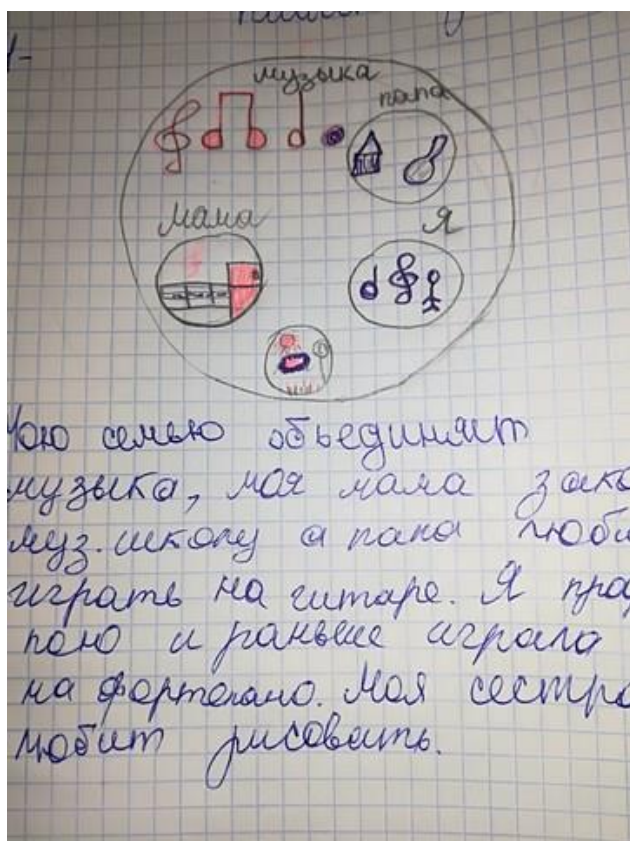 1-
музыка
папа
мама
Я
мою семью объединяет
музыка, моя мама зако
муз.школу а папа люби
играть на гитаре. Я про
пою и раньше играла
на фортепиано. Моя сестра
любит рисовать.